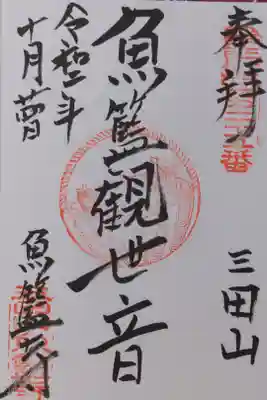 奉拝
三田山
魚籃観世音
令和二年
十月
魚籃寺